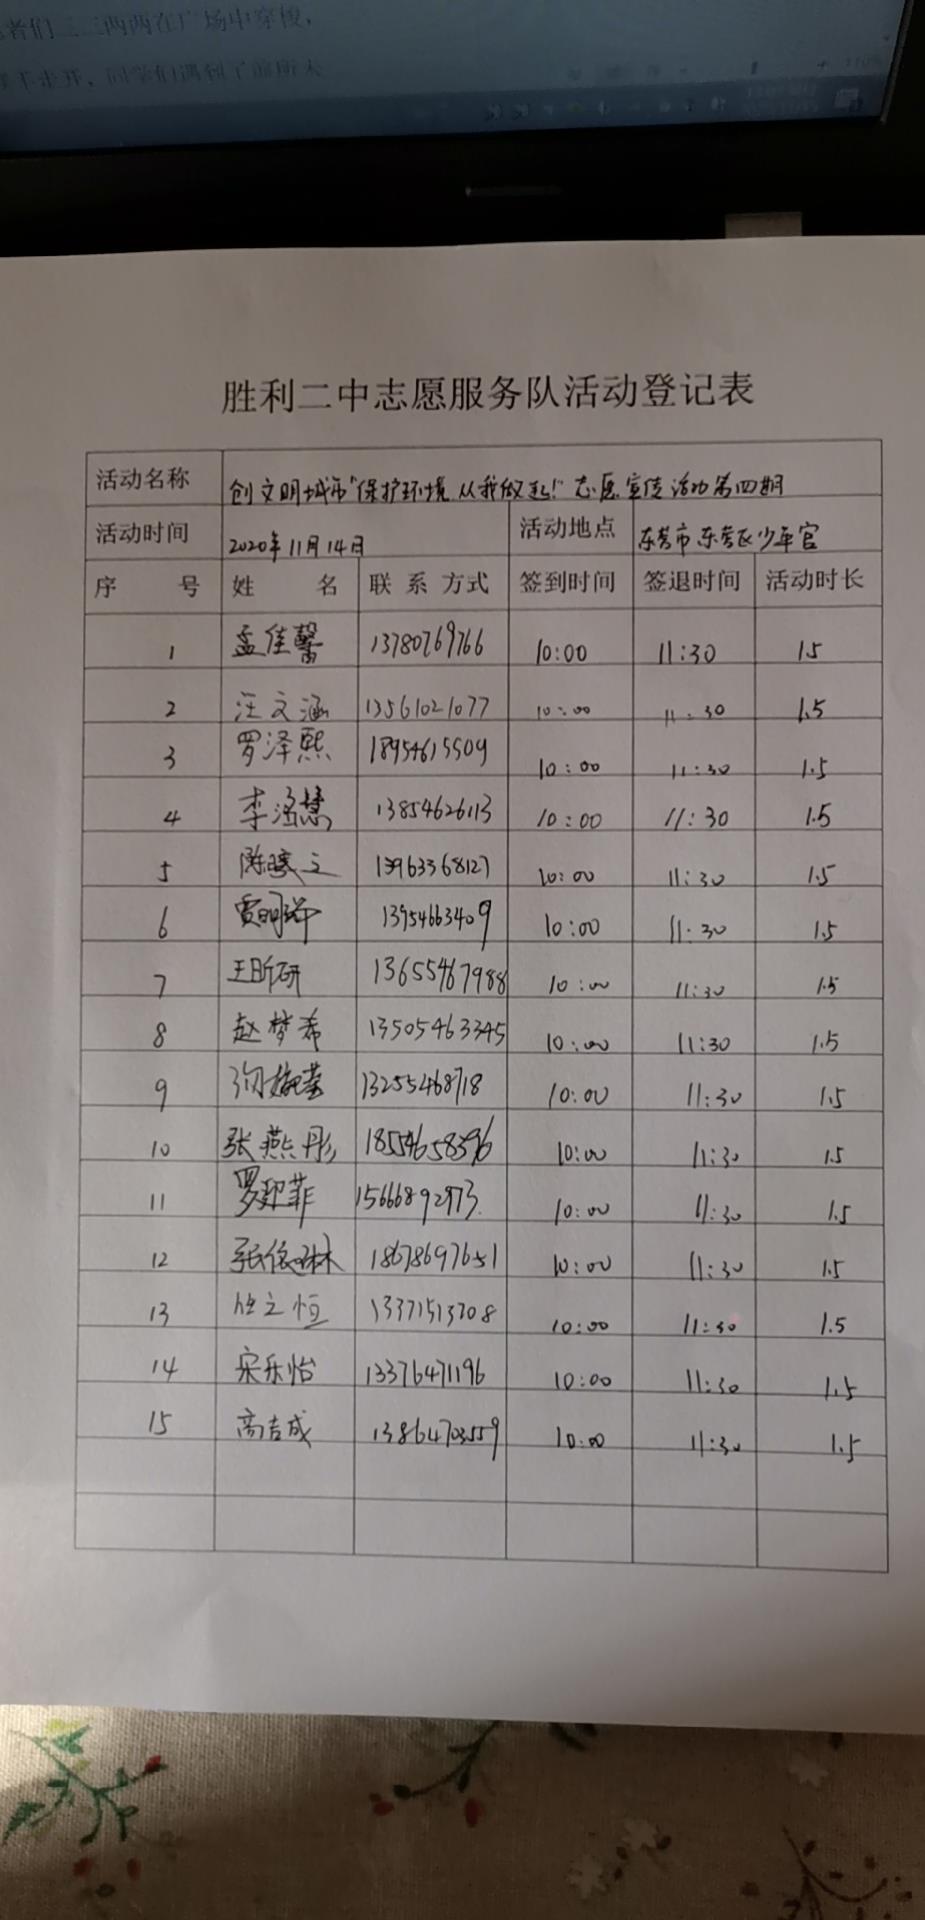 者们三三两两在广场中穿梭，
胜利二中志愿服务队活动登记表
活动名称 创文明城市"保护环境从我做起!"志愿宣传活动第四期
活动时间 2020年11月14日 活动地点 东营市东营区少年宫
序 号 姓 名 联系方式 签到时间 签退时间 活动时长
1 孟佳馨 13780769766 10:00 11:30 1.5
2 汪文涵 13561021077 10:00 11:30 1.5
3 罗泽熙 18954615509 10:00 11:30 1.5
4 李涵慧 13854626113 10:00 11:30 1.5
5 13963368127 10:00 11:30 1.5
6 贾明瑞 13954663409 10:00 11:30 1.5
7 王昕研 13655467988 10:00 11:30 1.5
8 赵梦希 13505463345 10:00 11:30 1.5
9 13255468718 10:00 11:30 1.5
10 张燕彤 18554658396 10:00 11:30 1.5
11 15666892973 10:00 11:30 1.5
12 18678697651 10:00 11:30 1.5
13 任之恒 13371513708 10:00 11:30 1.5
14 宋乐怡 13376471196 10:00 11:30 1.5
15 高吉成 13864703559 10:00 11:30 1.5